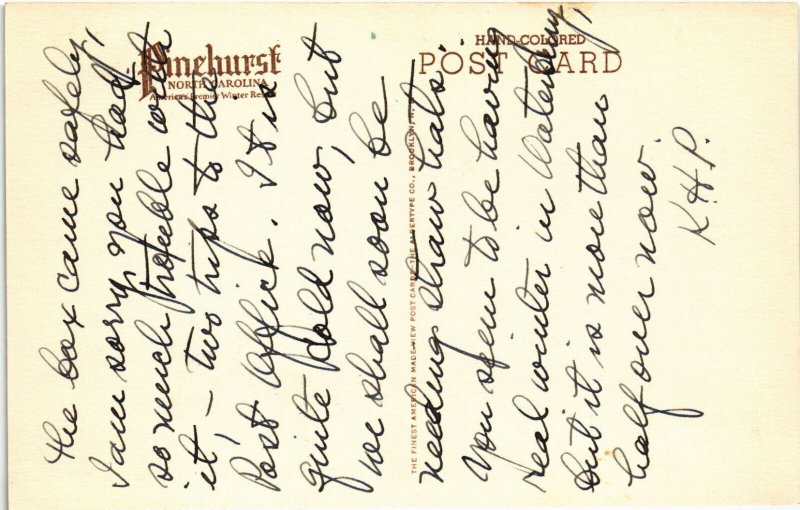 Pinehurst
NORTH CAROLINA
America's Premier Winter Resort
HAND-COLORED
POST CARD
THE FINEST AMERICAN MADE VIEW POST CARDS. THE ALBERTYPE CO., BROOKLYN, N.
The box came safely,
I am sorry you had
so much trouble with
it, – two trips to the
Post Office. It is
quite cold now, but
we shall soon be
needing straw hats.
You seem to be having
real winter in Waterbury,
but it is more than
half over now.
K.H.P.